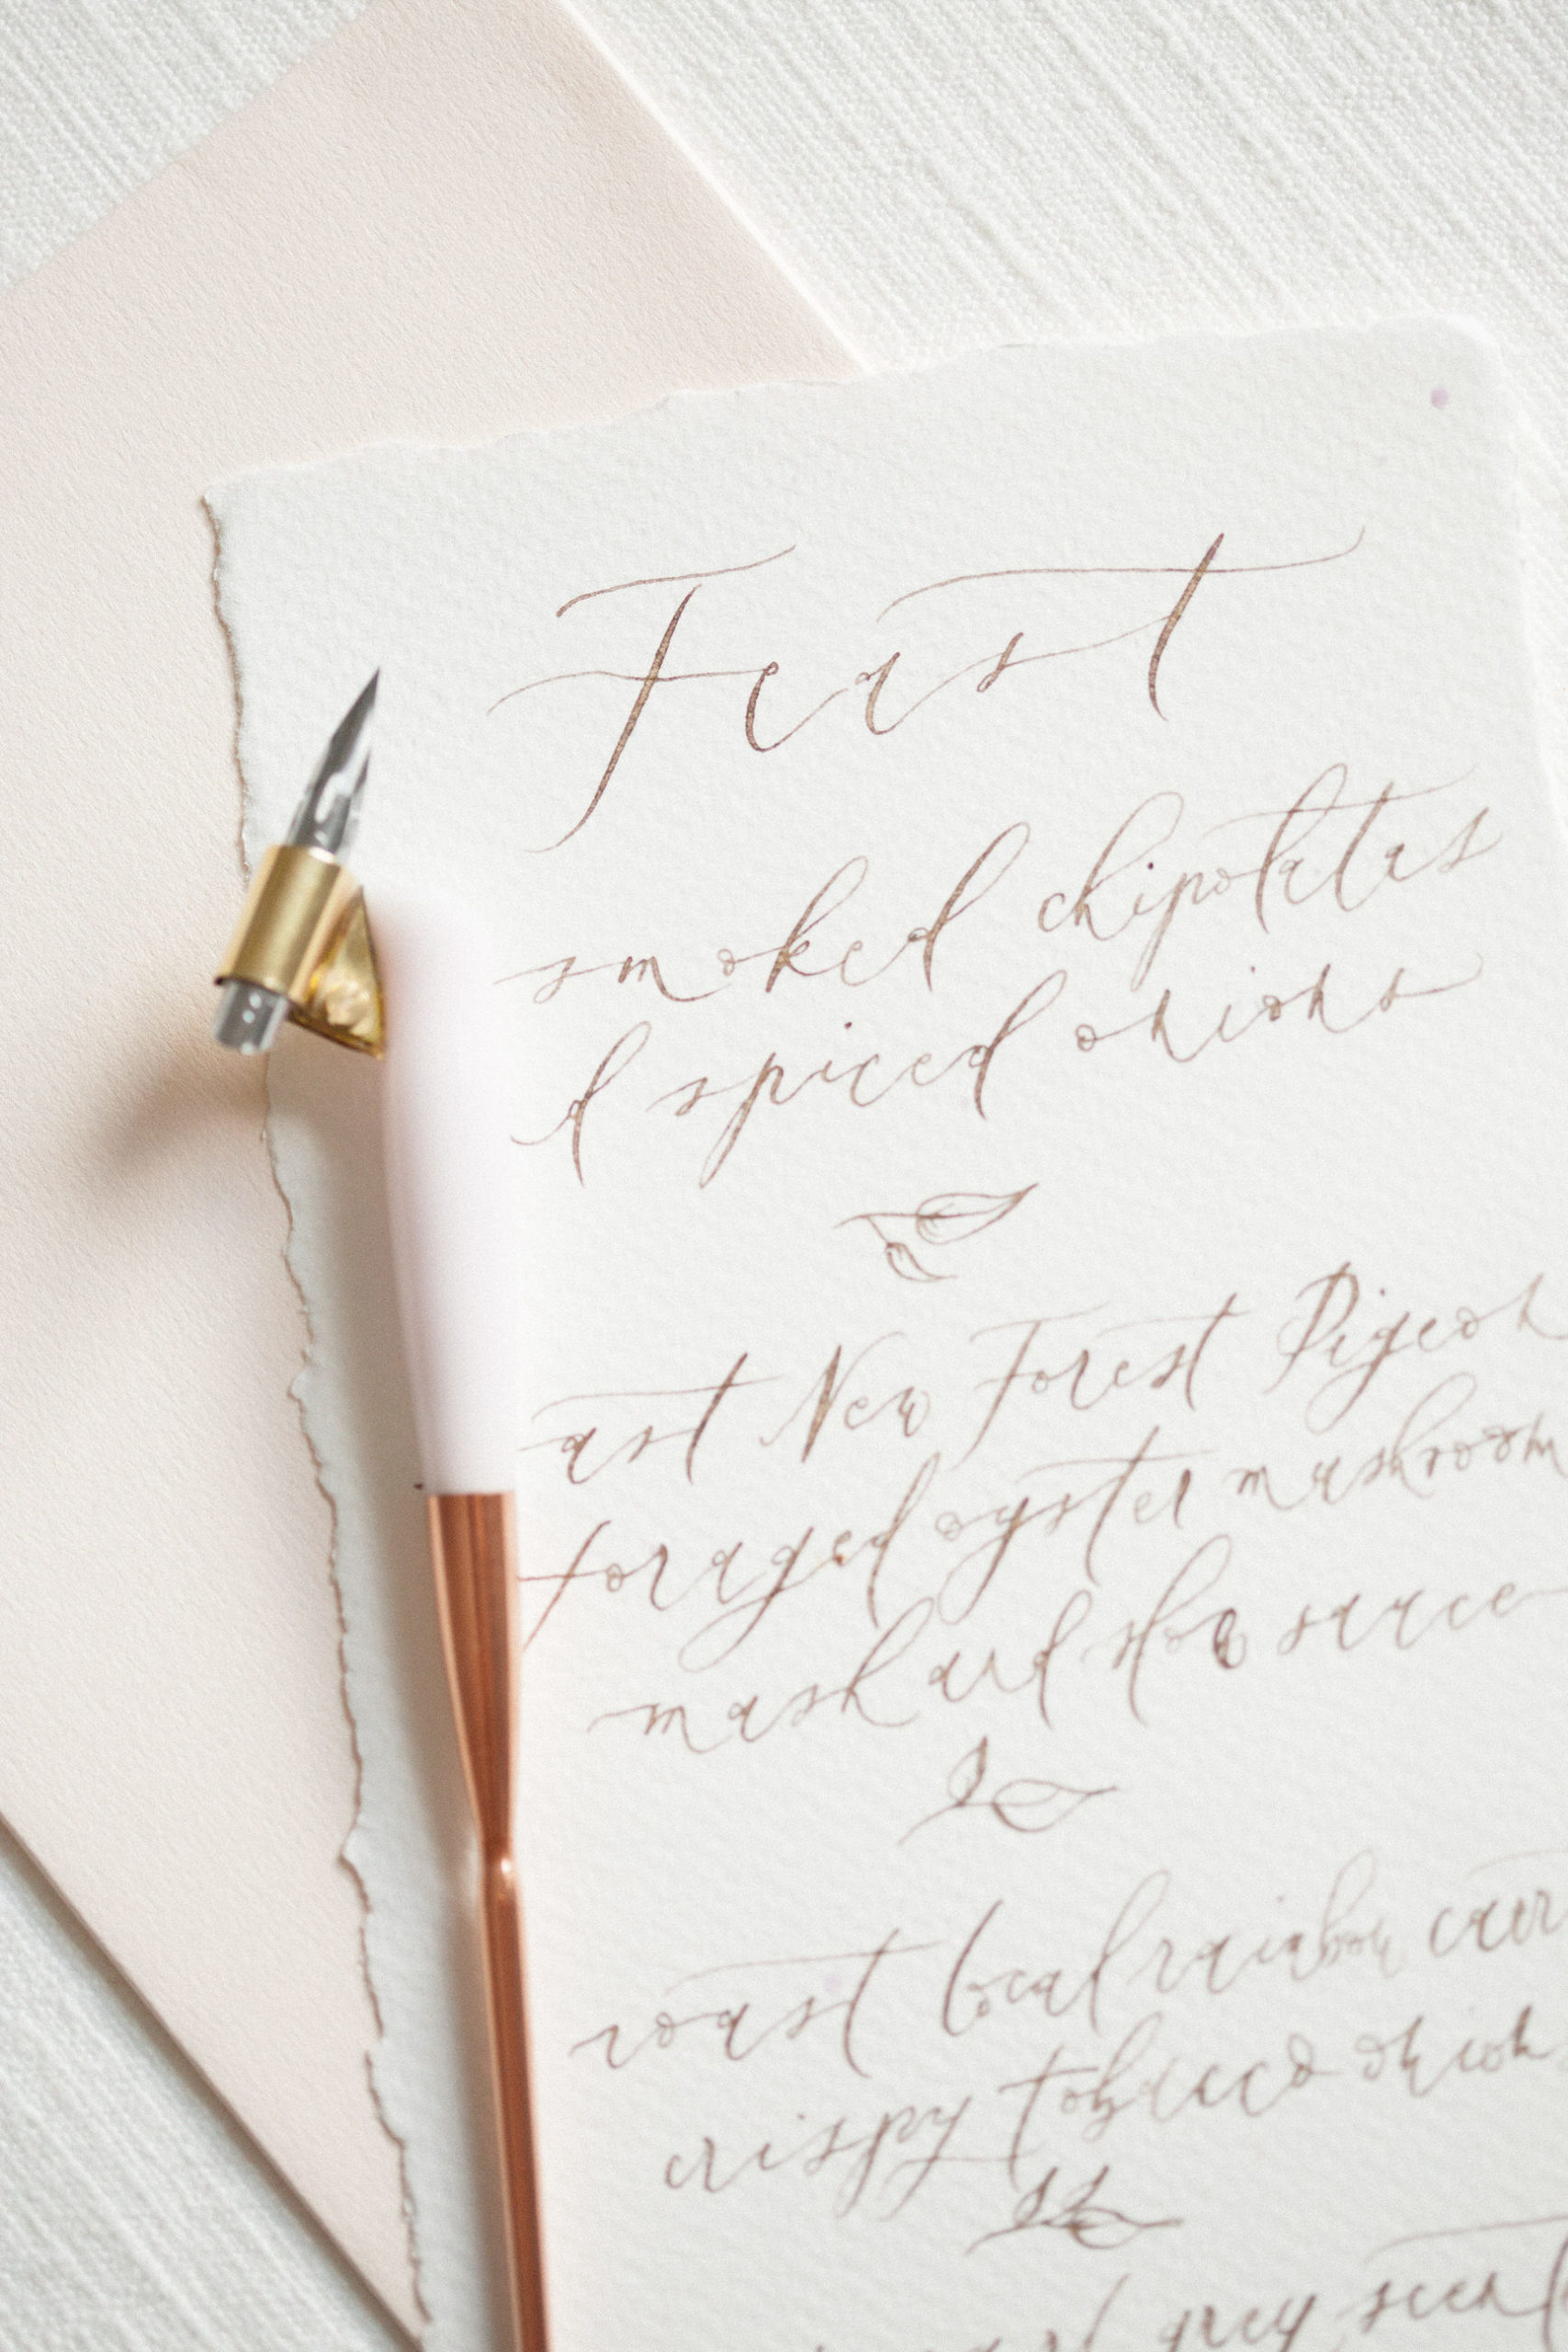 Feast
smoked chipolatas
d spiced onions
ast New Forest Pigeon
foraged oyster mushroom
mash and sloe sauce
roast local rainbow carr
crispy tobacco onion
grey